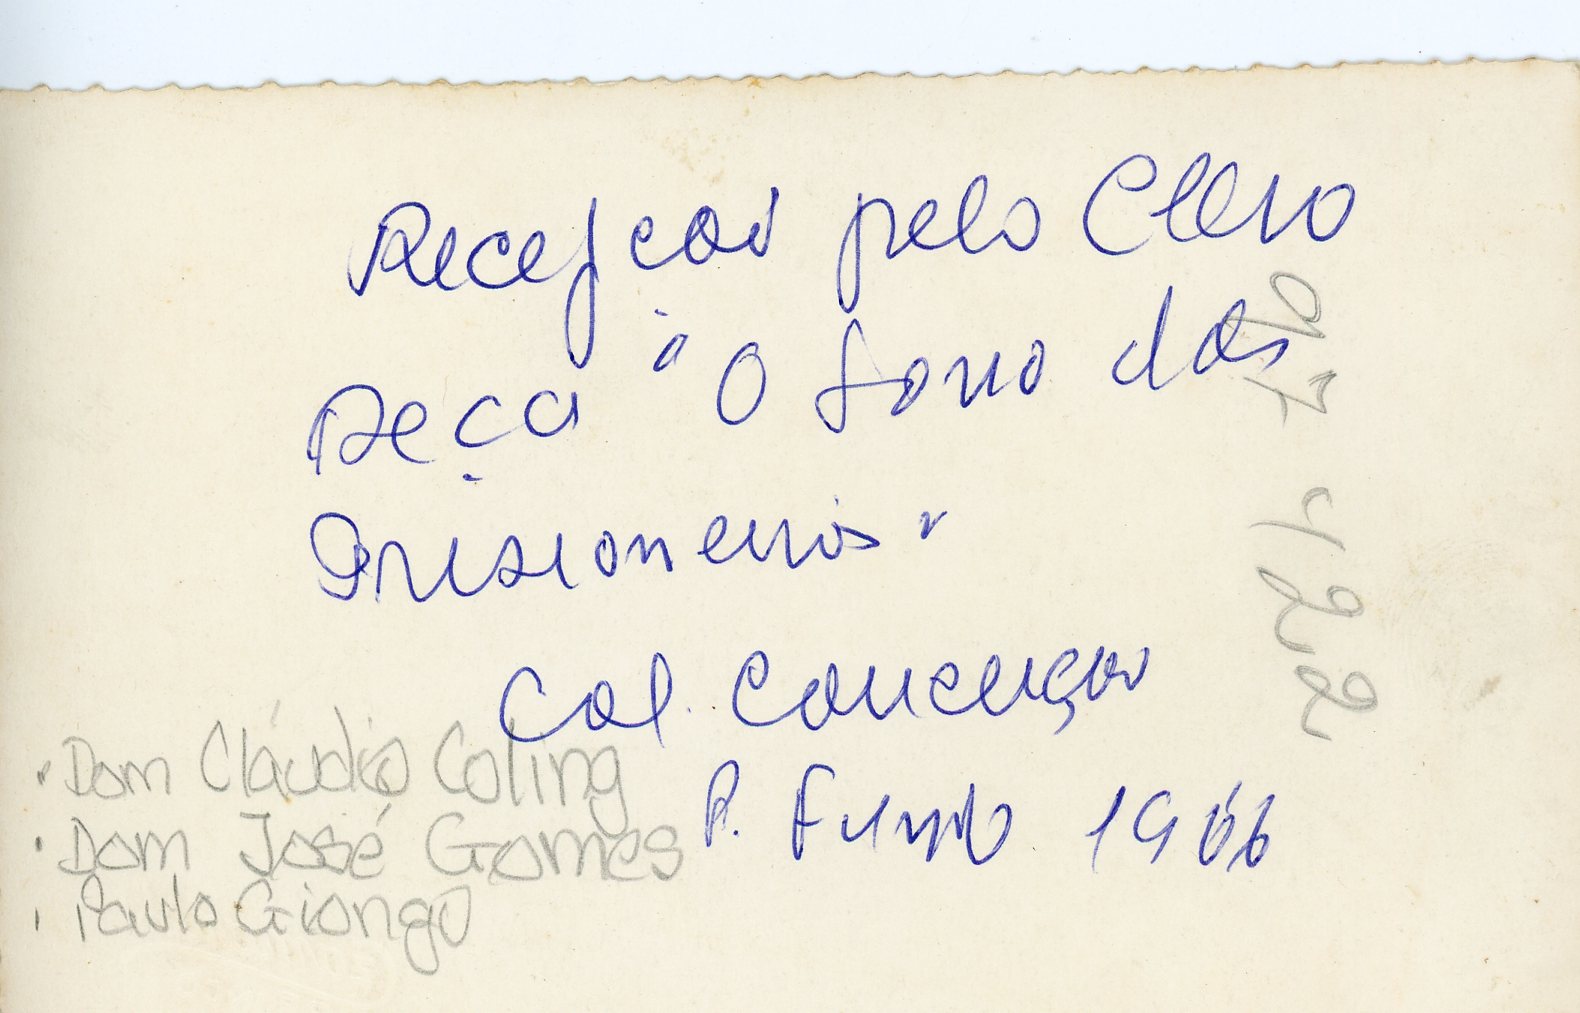 Recepção pelo Clero
Peça "O Sono dos
Prisioneiros"
Col. Conceição
P. Fundo 1966
• Dom Cláudio Coling
• Dom José Gomes
• Paulo Giongo